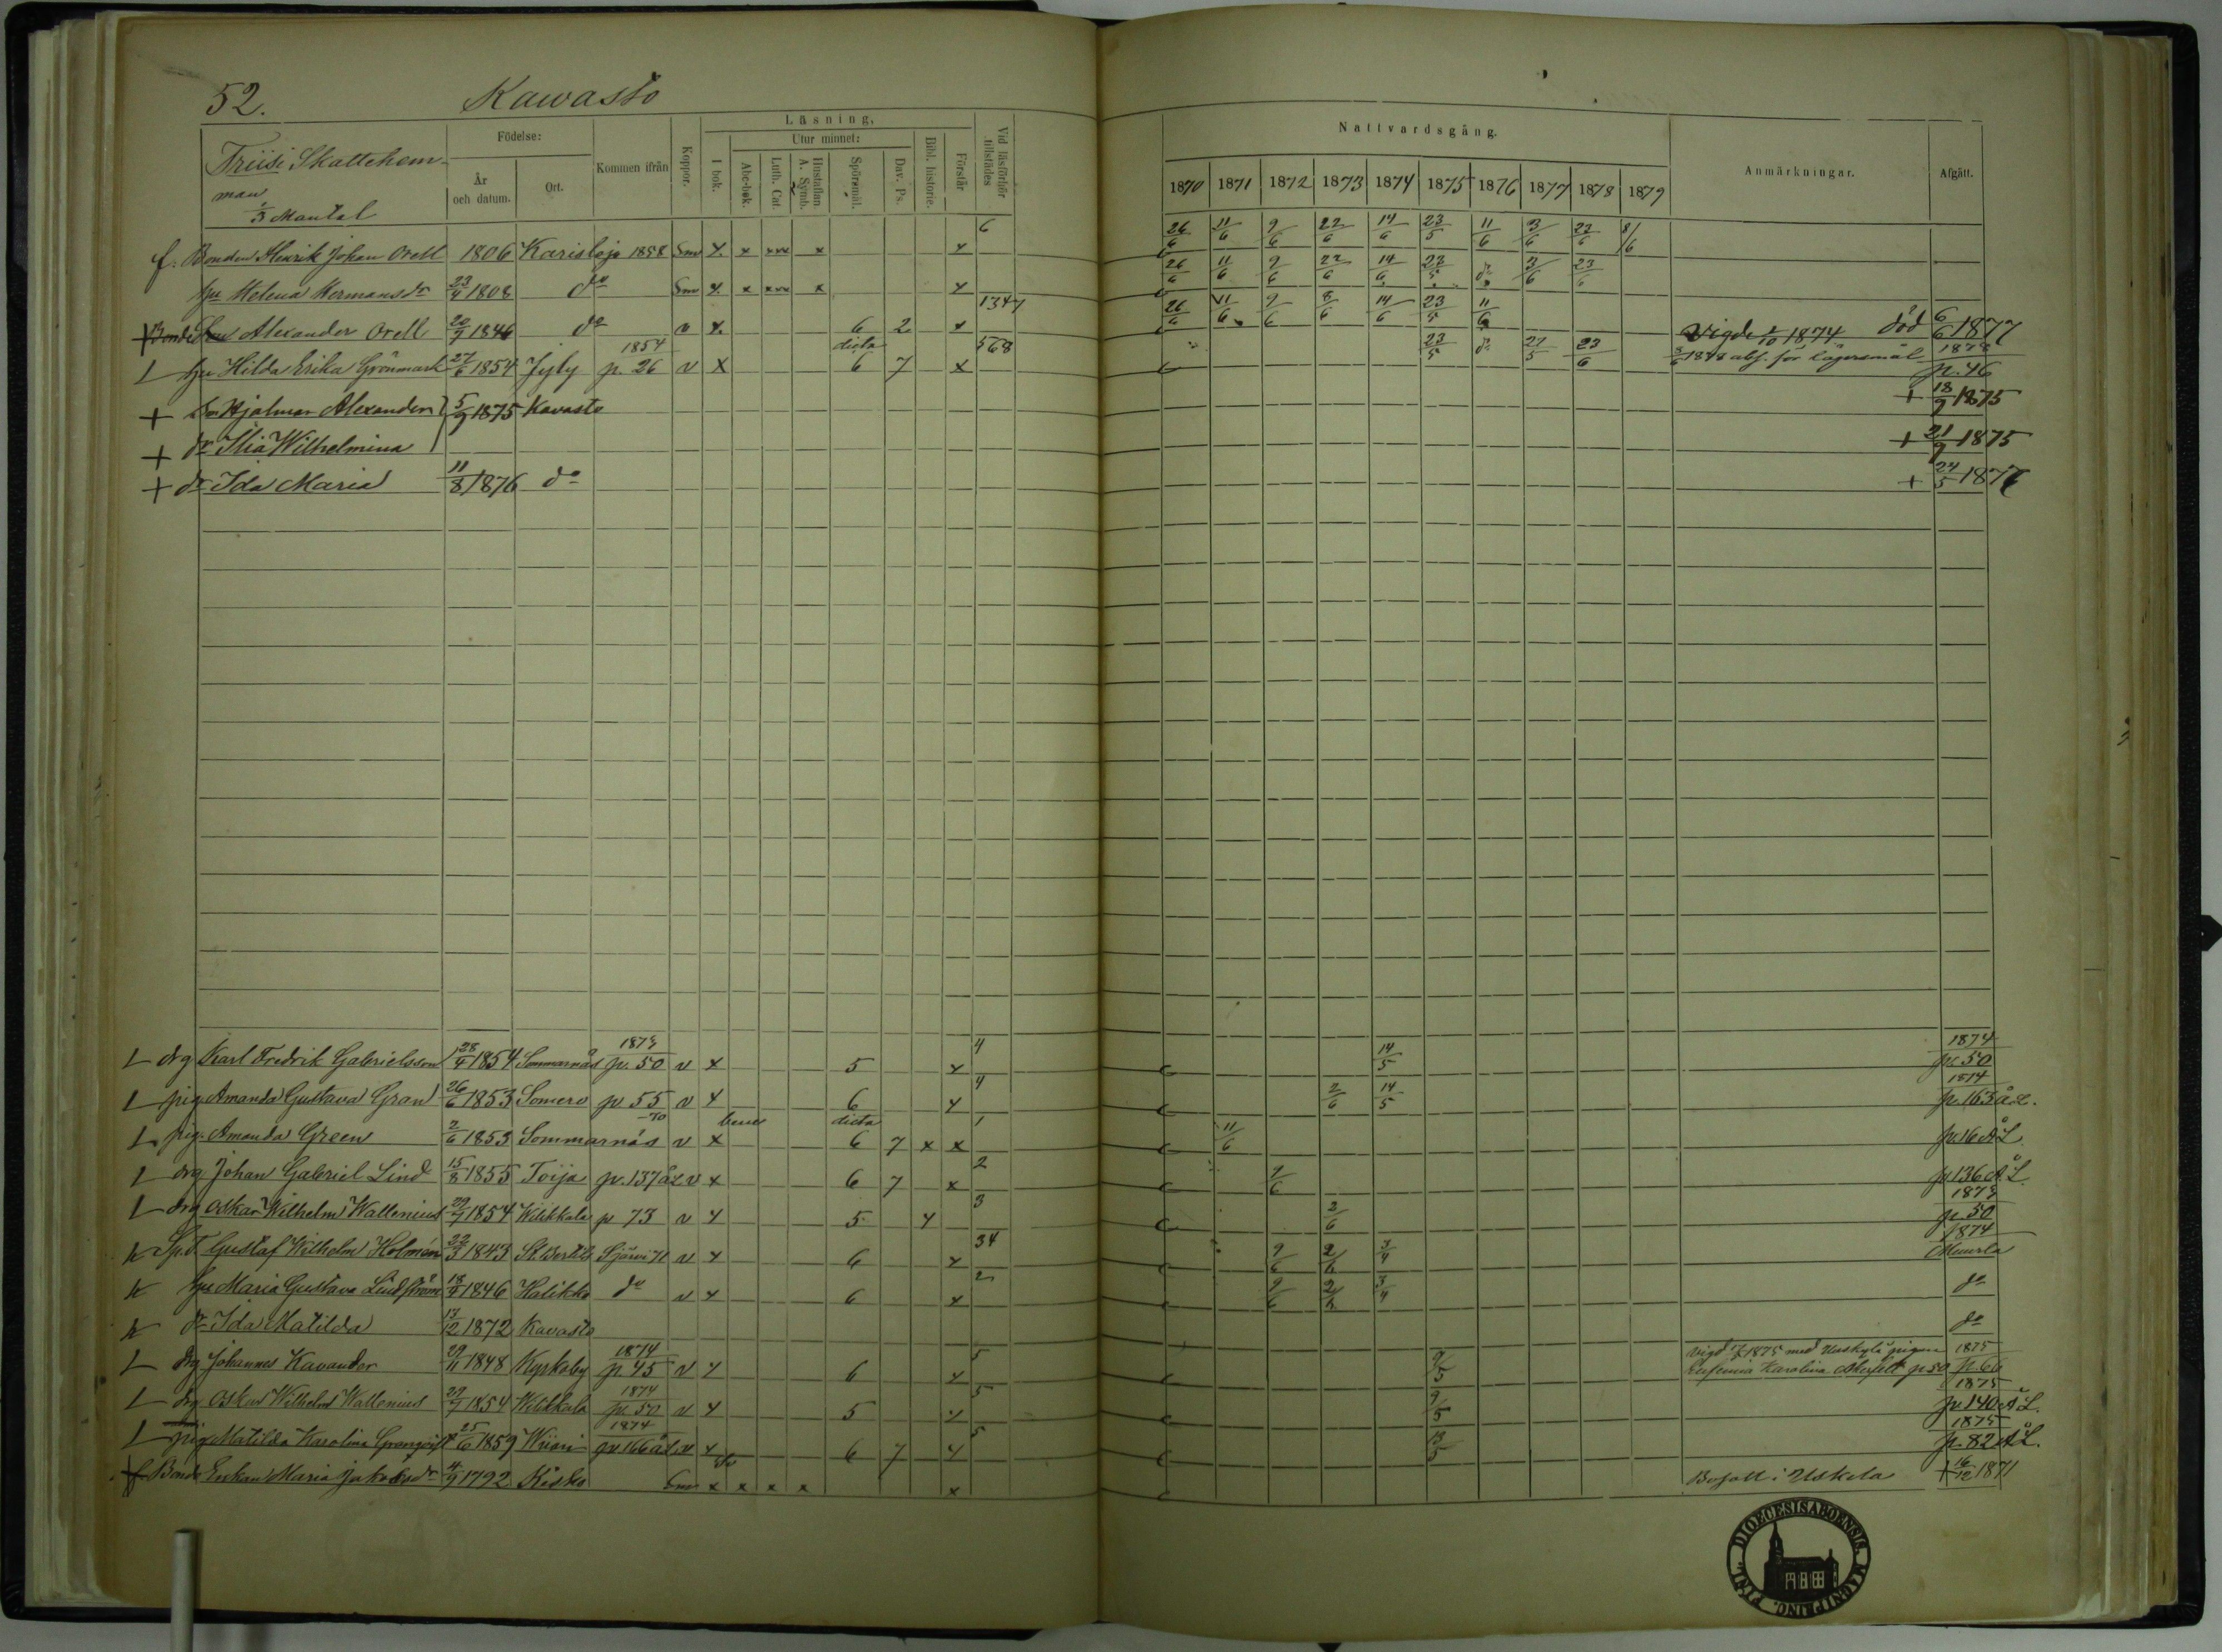 52. Kawasto
Friisi Skattehem-
man
1/3 Mantal
Födelse:
År och datum.
Ort.
Kommen ifrån
Koppor.
Läsning,
I bok.
Utur minnet:
Abc-bok.
Luth. Cat.
Hustaflan. A. Symb.
Spörsmål.
Dav. Ps.
Bibl. historie.
Förstår
Vid läsförhör tillstädes
Nattvardsgång.
1870 1871 1872 1873 1874 1875 1876 1877 1878 1879
Anmärkningar.
Afgått.
f. Bonden Henrik Johan Orell 1806 Karislojo 1858 x x xxx x x 6 26/6 11/6 9/6 22/6 14/6 23/5 11/6 3/6 23/6 8/6
hu Helena Hermansdr 23/4 1808 do x x xxx x x 26/6 11/6 9/6 22/6 14/6 23/5 do 3/6 23/6
+ Bonde Alexander Orell 20/9 1846 do v x 6 2 x 1347 26/6 11/6 9/6 8/6 14/6 23/5 11/6 Vigde 2/10 1874 död 6/6 1877
L hu Hilda Erika Grönmark 27/6 1854 Jyly 1854 p. 26 v x dicta 6 7 x 568 23/5 do 27/5 23/6 1878 abs. för lägersmål 1878 p. 46
+ So. Hjalmar Alexander 5/9 1875 Kavasto + 18/9 1875
+ dr Wilhelmina + 21/9 1875
+ dr Ida Maria 11/8 1876 do + 24/5 1877
L drg Karl Fredrik Gabrielsson 28/4 1854 Sommarnäs p. 50 v x 5 x 4 14/5 1874 p. 50
L pig. Amanda Gustava Gran 26/6 1853 Somero p 55 v x 6 x 4 2/6 14/5 1874 p. 165 ÅL.
L pig. Amanda Green 2/6 1853 Sommarnäs v x bene dicta 6 7 x x 1 11/6 p. 16 ÅL
L drg Johan Gabriel Lind 15/8 1855 Toija p. 137 ÅL v x 6 7 x 2 9/6 p 136 ÅL.
L drg Oskar Wilhelm Wallenius 29/9 1854 Wilikkala p 73 v x 5 x 3 2/6 1873 p. 50
K Gustaf Wilhelm Holmén 22/3 1843 St. Bertils v x 6 x 34 9/6 2/6 3/4 1874 Muurla
K hu Maria Gustava Lindström 18/7 1846 Halikko do v x 6 x 2 9/6 2/6 3/4 do
K dr Ida Matilda 13/12 1872 Kavasto do
L drg Johannes Kavander 29/11 1848 Kyrkoby 1874 p. 45 v x 6 x 5 9/5 vigd 1875 med pigan 1875
Eufemia Karolina p 50 p. 66
L drg Oskar Wilhelm Wallenius 29/9 1854 Wilikkala 1874 p. 50 v x 5 x 5 9/5 1875 p. 140 ÅL.
L pig Matilda Karolina Granqvist 25/6 1859 Wiiari 1874 p. 166 ÅL v x 6 7 x 5 13/5 1875 p. 82 ÅL.
f Bonde Enkan Maria Jakobsdr 4/9 1792 Kisko x x x x x Bosatt i Uskela + 16/12 1871
DIOECESIS ABOENSIS. MAGNI PRINC. FINL.